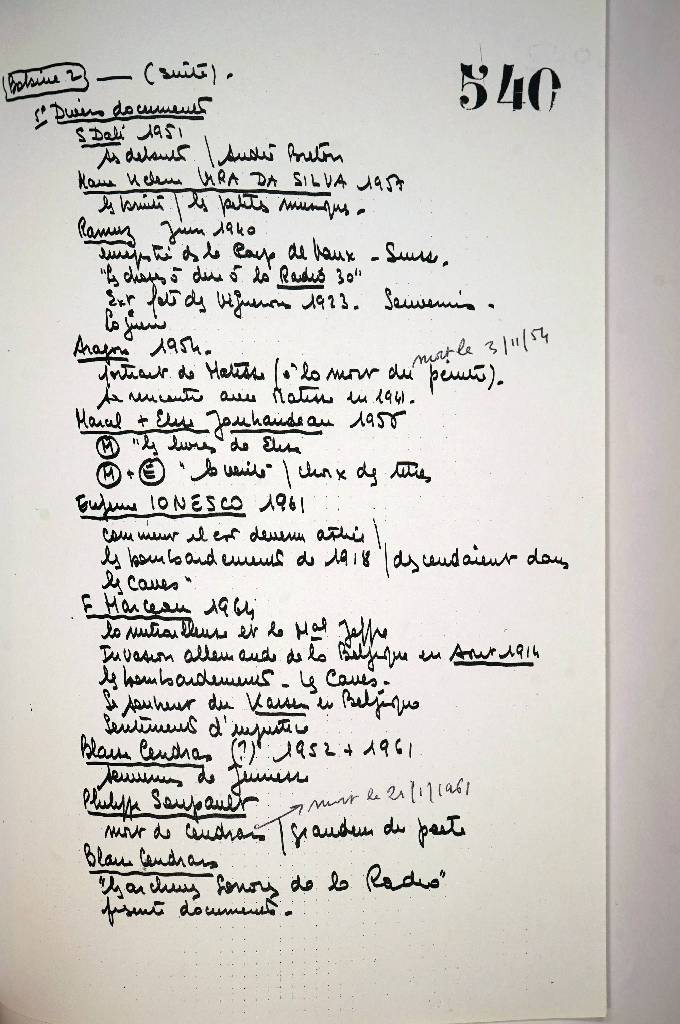 Bobine 2 — (suite).
540
5° Divers documents
S Dali 1951
ses debuts / André Breton
VIERA DA SILVA 1957
les bruits / les petites musiques.
Ramuz Juin 1940
enregistré ds le Car de Vaux - Suisse.
"les choses à dire à la Radio 30"
Ext fête des Vignerons 1923. Souvenirs.
Aragon 1954.
mort le 3/11/54
portrait de Matisse (à la mort du peintre).
sa rencontre avec Matisse en 1941.
Marcel + Elise Jouhandeau 1955
M "les livres de Elise
M + E "la vérité" / choix des titres
Eugène IONESCO 1961
comment il est devenu
les bombardements de 1918 / descendaient dans
les caves"
F Marceau 1964
la mitrailleuse et le Mal Joffre
Invasion allemande de la Belgique en Aout 1914
les bombardements - les caves.
Le du Kaiser en Belgique
Sentiment d'injustice
Blaise Cendrars (?) 1952 + 1961
souvenirs de Jeunesse
Philippe Soupault
mort le 21/1/1961
mort de Cendrars / grandeur du poete
Blaise Cendrars
"les archives Sonores de la Radio"
présente documents.